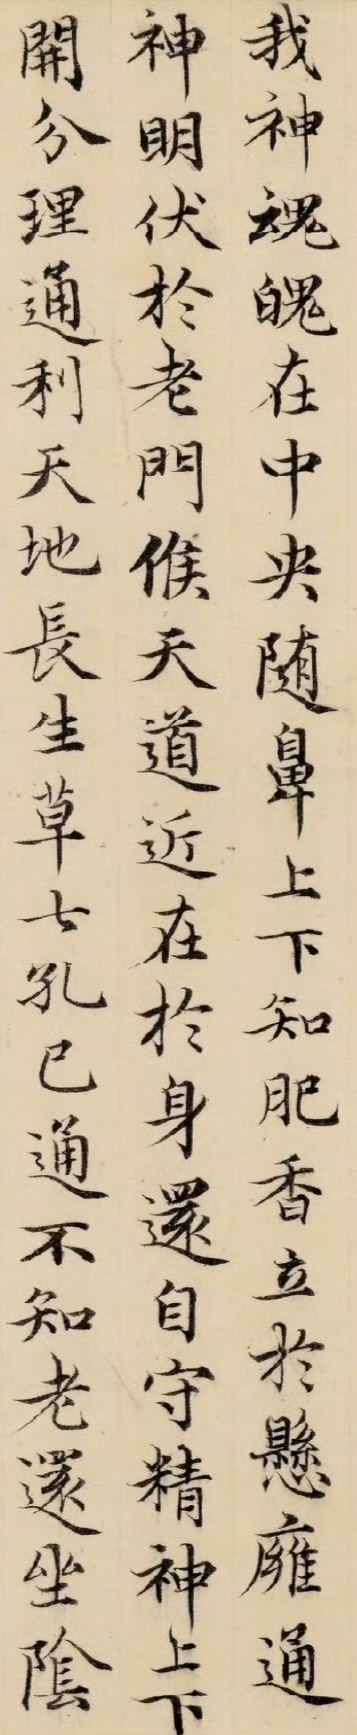 我神魂魄在中央随鼻上下知肥香立於懸廱通
神明伏於老門候天道近在於身還自守精神上下
開分理通利天地長生草七孔已通不知老還坐陰